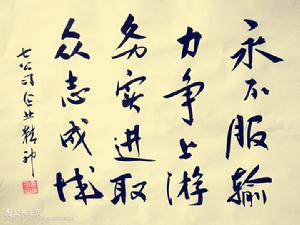 永不服输
力争上游
务实进取
众志成城
七公司企业精神